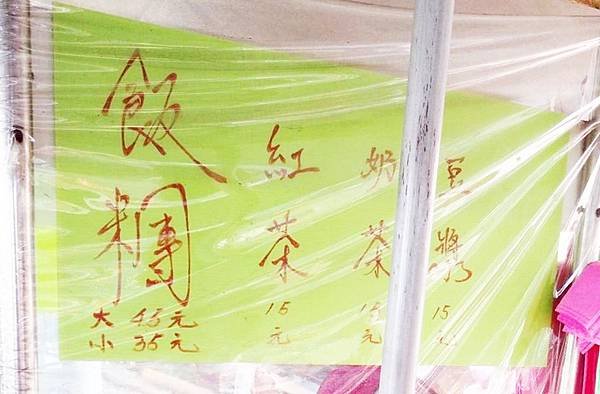 飯糰
大 45元
小 35元
紅茶
15元
奶茶
15元
豆漿
15